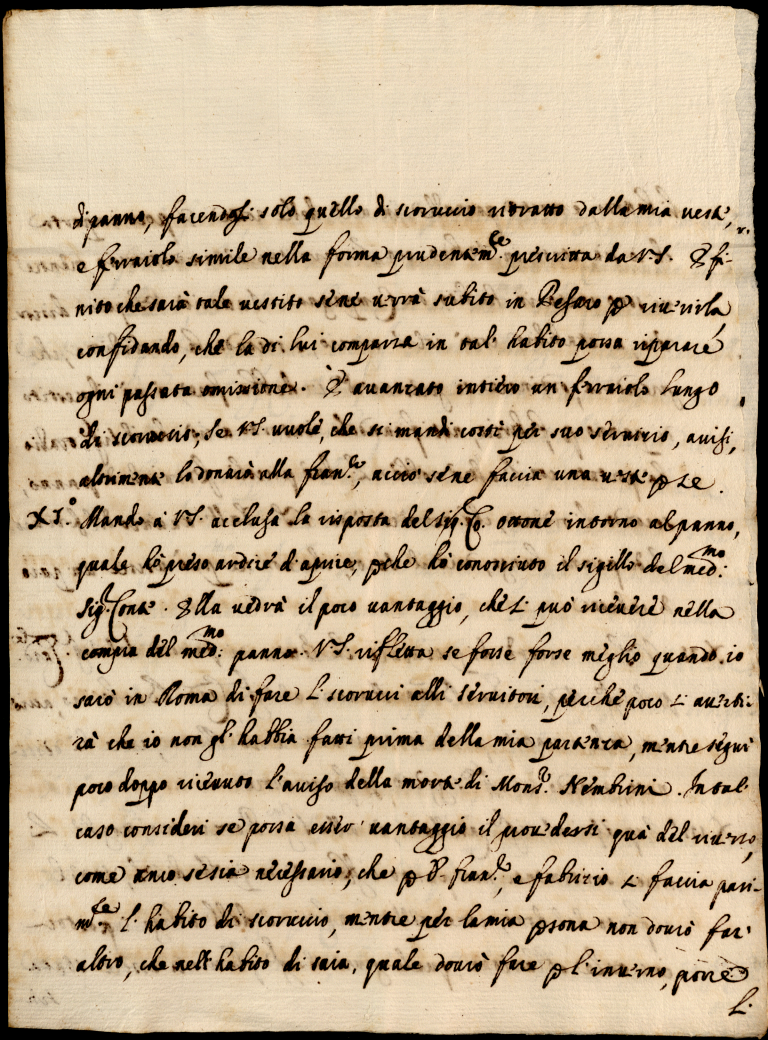 di panno, facendogli solo quello di scoruccio ritratto dalla mia veste,
e ferraiolo simile nella forma prudentemte prescritta da V.S. E fi-
nito che sarà tale vestito se ne verrà subito in Pesaro p riverirla
confidando, che la di lui comparsa in tal habito possa riparare
ogni passata omissione. È avanzato intiero un ferraiolo lungo
di scoruccio; se V.S. vuole, che si mandi costì per suo servitio, avisi,
altrimente lo donarà alla Franca, acciò se ne faccia una veste p se.
XI.o Mando à V.S. acclusa la risposta del Sig. Co. Ottone intorno al panno,
quale hò preso ardire d'aprire, pche hò conosciuto il sigillo del medmo:
Sig. Conte. Ella vedrà il poco vantaggio, che si può ricevere nella
compra del medmo: panno. V.S. rifletta se forse forse meglio quando io
sarò in Roma di fare li scorucci alli servitori, perche poco si averti-
rà che io non gl'habbia fatti prima della mia partenza, mentre seguì
poco doppo ricevuto l'aviso della morte di Monsr. Nembrini. In tal
caso consideri se possa esser vantaggio il provedersi quà del
come anco se sia necessario, che p D. Franco, e Fabritio si faccia pari-
mte: l'habito di scoruccio, mentre per la mia psona non dovrò far
altro, che nell'habito di saia, quale dovrò fare p l'inverno, porre
l.